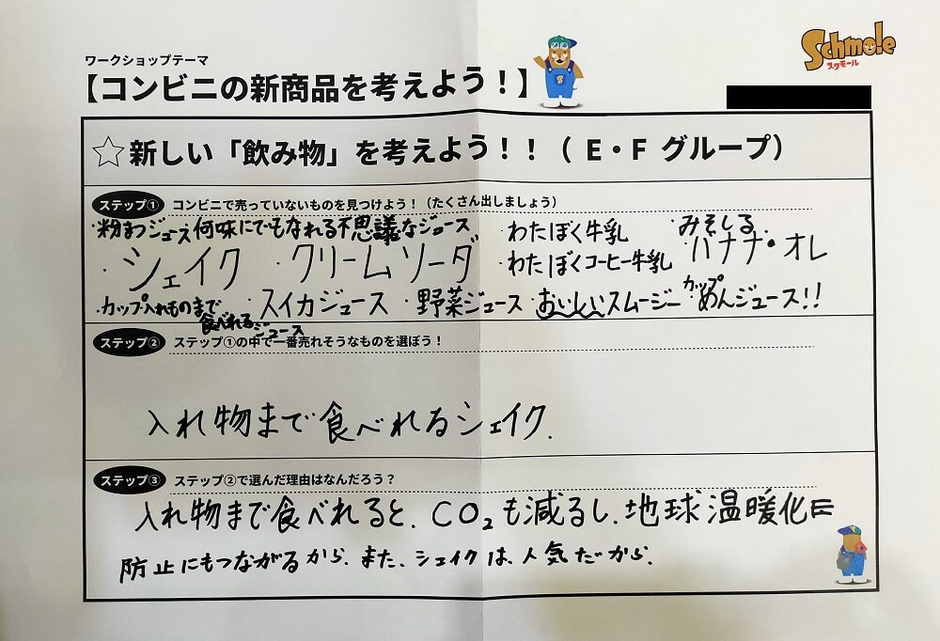 Schmole
スクモール
ワークショップテーマ
【コンビニの新商品を考えよう！】
☆新しい「飲み物」を考えよう！！（ E・F グループ）
ステップ① コンビニで売っていないものを見つけよう！（たくさん出しましょう）
・粉まつジュース 何味にでもなれる不思議なジュース ・わたぼく牛乳 ・みそしる
・シェイク ・クリームソーダ ・わたぼくコーヒー牛乳 ・バナナ・オレ
・カップ入れものまで食べれるジュース ・スイカジュース ・野菜ジュース おいしいスムージー ・カップめんジュース!!
ステップ② ステップ①の中で一番売れそうなものを選ぼう！
入れ物まで食べれるシェイク.
ステップ③ ステップ②で選んだ理由はなんだろう？
入れ物まで食べれると、CO₂も減るし、地球温暖化
防止にもつながるから、また、シェイクは、人気だから。